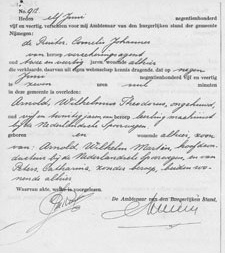 No. 918
Heden elf Juni negentienhonderd
vijf en veertig, verscheen voor mij Ambtenaar van den Burgerlijken stand der gemeente
Nijmegen:
de Ruiter, Cornelis Johannes
van beroep verzekeringsagent
oud twee en veertig jaren, wonende alhier
die verklaarde, daar van uit eigen wetenschap kennis dragende, dat op negen
Juni negentienhonderd vijf en veertig te
zeven uren nul minuten
in deze gemeente is overleden:
Arnold Wilhelmus Theodorus, ongehuwd,
vijf en twintig jaren van beroep leerling machinist
bij de Nederlandsche Spoorwegen
en wonende alhier, zoon
van: Arnold, Wilhelm Marten, hoofdcon-
ducteur bij de Nederlandsche Spoorwegen en van
Peters Catharina, zonder beroep, beiden wo-
nende alhier
Waarvan akte, welke is voorgelezen.
De Ambtenaar van den Burgerlijken Stand,